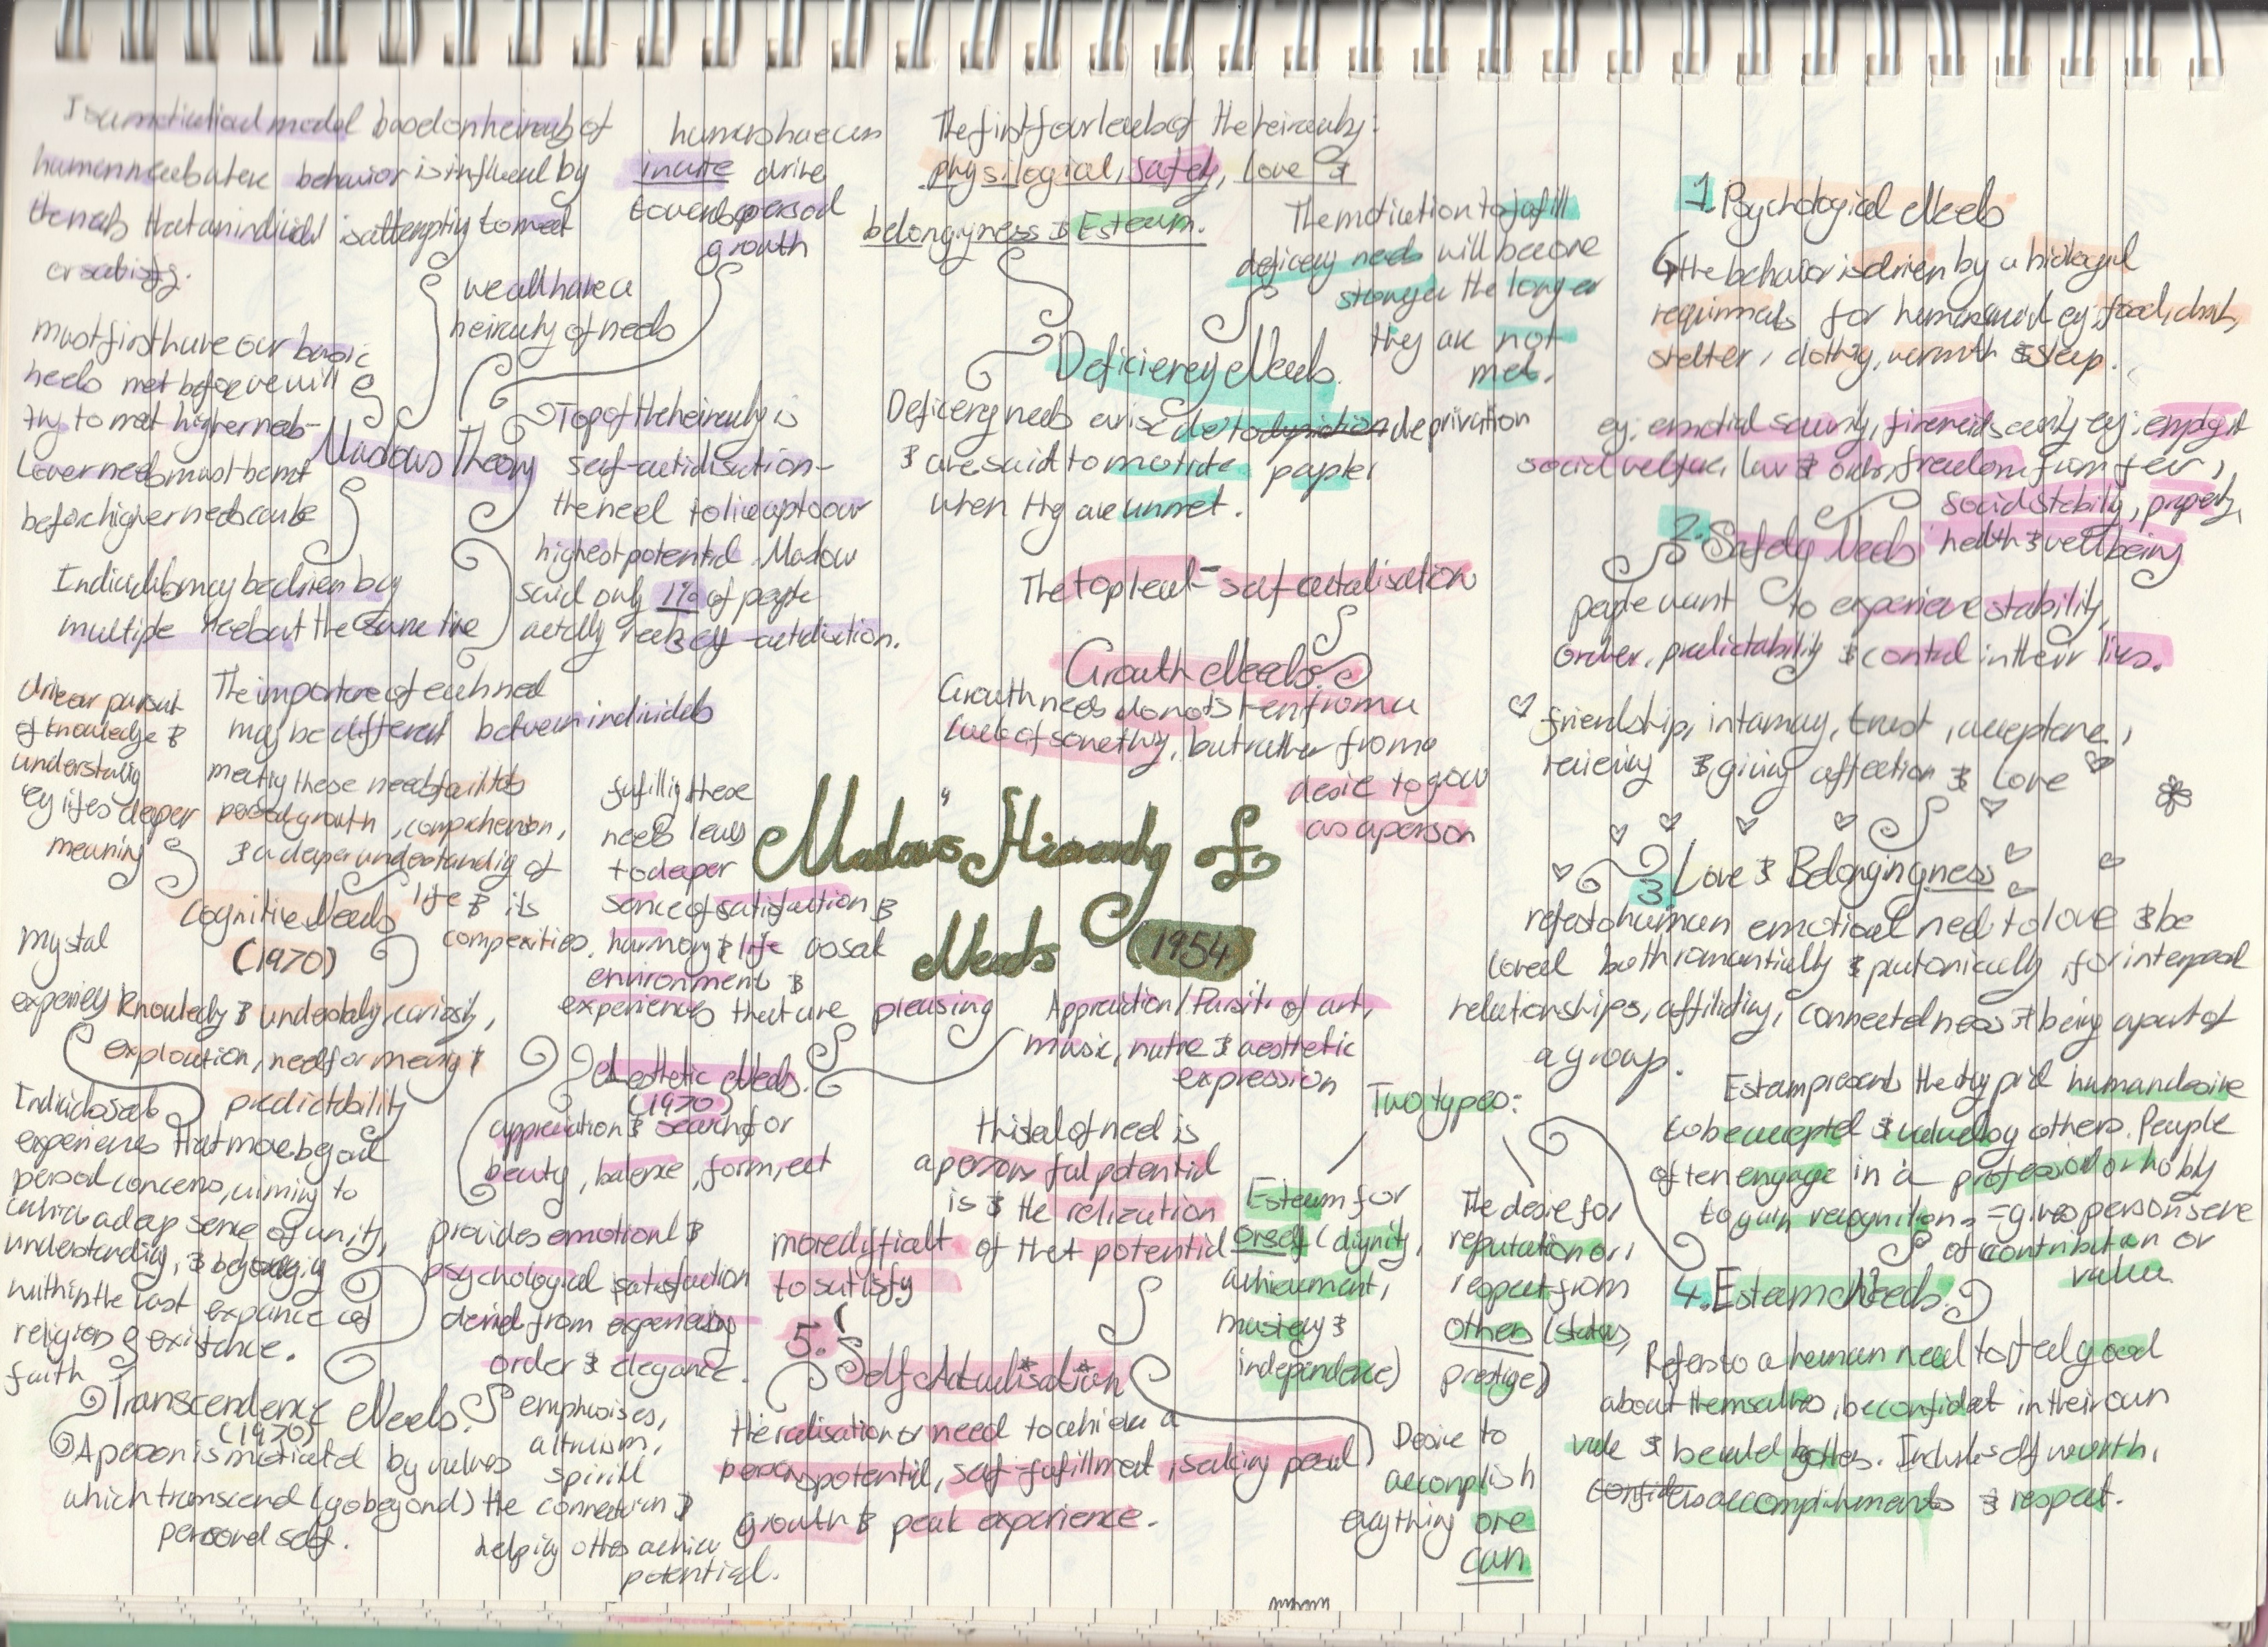 Is a motivational model based on heirarchy of
human needs where behavior is influenced by
the needs that an individual is attempting to meet
or satisfy.
humans have an
innate drive
towards personal
growth
we all have a
heirarchy of needs
must first have our basic
needs met before we will
try to meet higher needs -
Lower needs must be met
before higher needs can be
Maslows Theory
Top of the heirarchy is
self-actualisation -
the need to live up to our
highest potential. Maslow
said only 1% of people
actually reach self-actualisation.
Individuals may be driven by
multiple needs at the same time
The importance of each need
may be different between individuals
The first four levels of the heirarchy:
physilogical, safety, love &
belongyness & Esteem.
The motivation to fufill
deficiency needs will become
stronger the longer
they are not
met.
Deficiency Needs.
Deficiency needs arise due to deprivation
& are said to motivate people
when they are unmet.
The top level - self-actualisation
Growth Needs
Growth needs do not stem from a
lack of something, but rather from a
desire to grow
as a person
Maslow's Hierarchy of
Needs (1954)
1. Psychological Needs
the behavior is driven by a biological
requirments for human survival eg; food, drink,
shelter, clothing, warmth & sleep.
eg: emotional security, financial security eg: employment
social welfare, law & order, freedom from fear,
social stability, property,
health & wellbeing
2. Safety Needs
people want to experience stability,
order, predictability & control in their lives.
friendship, intamacy, trust, acceptance,
recieving & giving affection & love
3. Love & Belongingness
refers to human emotional need to love & be
loved both romantically & platonically, for interpersonal
relationships, affiliating, connectedness & being a part of
a group.
Esteem presents the typical human desire
to be accepted & valued by others. People
often engage in a profession or hobby
to gain recognition = gives person sense
of contribution or
value
4. Esteem Needs.
Refers to a human need to feel good
about themselves, be confident in their own
value & be valued by others. Includes self worth,
accomplishments & respect.
Two types:
Esteem for
oneself (dignity,
achievement,
mastery &
independence)
The desire for
reputation or
respect from
others (status,
prestige)
this level of need is
a persons full potential
is & the relization
of that potential
more difficalt
to satisfy
5. Self Actualisation
the realisation or need to achieve a
persons potential, self-fufillment, seeking personal
growth & peak experience.
Desire to
accomplish
everything one
can
drive or pursuit
of knowledge &
understanding
eg lifes deeper
meaning
meeting these needs facilitates
personal growth, comprehension,
& a deeper understanding of
life & its
compexities.
Cognitive Needs
(1970)
knowledge & understanding, curiosity,
exploration, need for meaning &
predictability
fufilling these
needs leads
to deeper
sence of satisfaction &
harmony & life as seek
environment &
experiences that are pleasing
Appreciation / Pursuit of art,
music, nature & aesthetic
expression
Aesthetic Needs.
(1970)
appreciation & search for
beauty, balence, form, ect
provides emotional &
psychological satisfaction
derived from experiencing
order & elegance.
mystal
experiency
Individuals seek
experiences that move beyond
personal concerns, aiming to
achieve a deep sense of unity,
understanding, & belonging
within the vast expance of
existance.
religious
faith
Transcendence Needs.
(1970)
A person is motivated by values
which transcend (go beyond) the
personal self.
emphasises,
altruism,
spiritual
connection &
helping others achieve
potential.